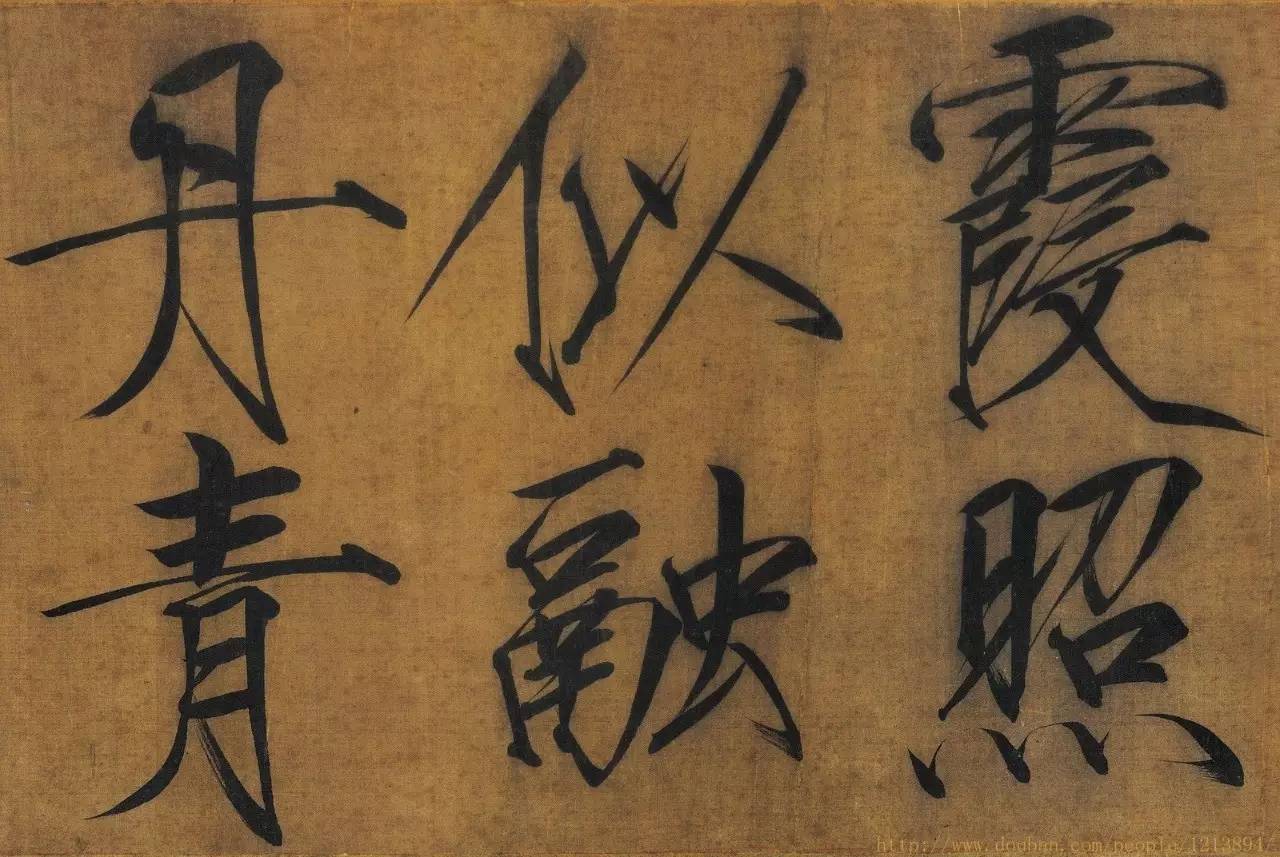 霞照
似融
丹青
http://www.douban.com/people/1213894/